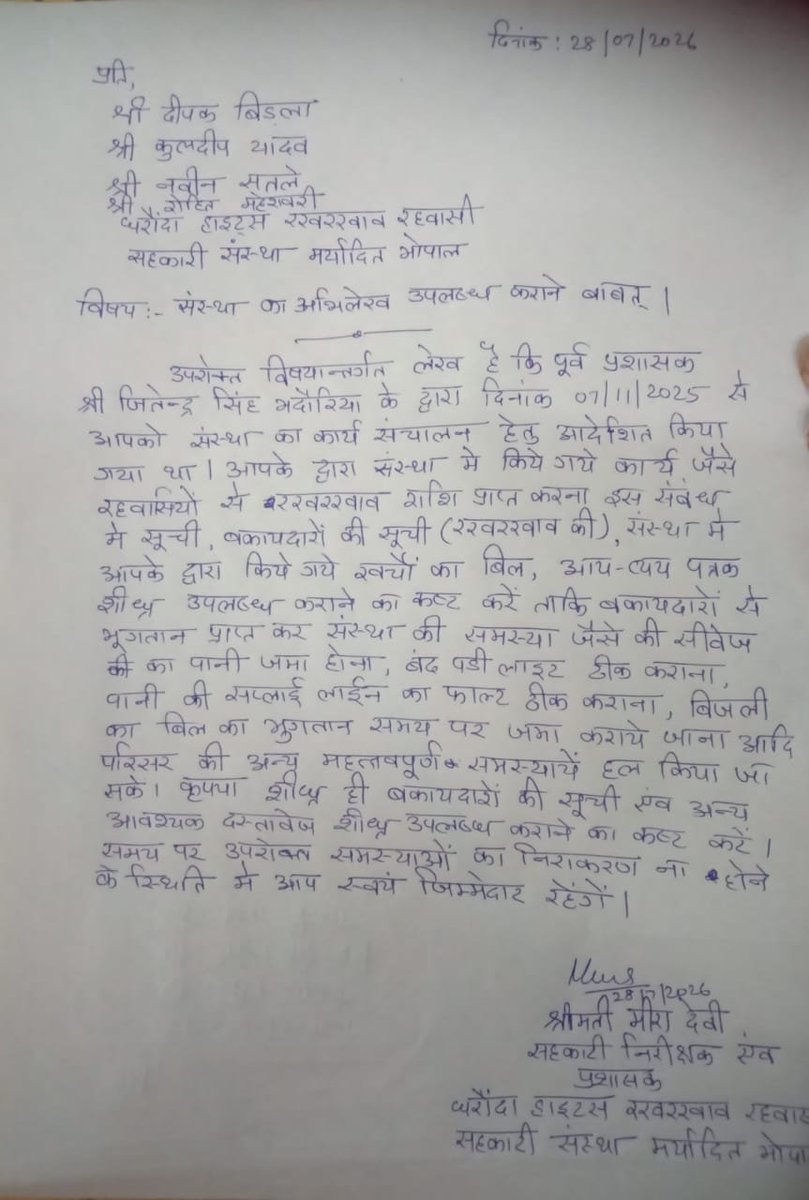 दिनांक : 28/07/2026
प्रति,
श्री दीपक बिडला
श्री कुलदीप यादव
श्री नवीन सतले
श्री रोहित महेश्वरी
घरौंदा हाइट्स रखरखाव रहवासी
सहकारी संस्था मर्यादित भोपाल
विषय :- संस्था का अभिलेख उपलब्ध कराने बाबत् |
उपरोक्त विषयान्तर्गत लेख है कि पूर्व प्रशासक
श्री जितेन्द्र सिंह भदौरिया के द्वारा दिनांक 07/11/2025 से
आपको संस्था का कार्य संचालन हेतु आदेशित किया
गया था | आपके द्वारा संस्था मे किये गये कार्य जैसे
रहवासियों से रखरखाव राशि प्राप्त करना इस संबंध
मे सूची, बकायदारों की सूची (रखरखाव की), संस्था मे
आपके द्वारा किये गये खर्चों का बिल, आय-व्यय पत्रक
शीघ्र उपलब्ध कराने का कष्ट करें ताकि बकायदारों से
भूगतान प्राप्त कर संस्था की समस्या जैसे की सीवेज
की का पानी जमा होना, बंद पडी लाइट ठीक कराना,
पानी की सप्लाई लाईन का फाल्ट ठीक कराना, बिजली
का बिल का भुगतान समय पर जमा कराये जाना आदि
परिसर की अन्य महत्तवपूर्ण समस्यायें हल किया जा
सके। कृपया शीघ्र ही बकायदारों की सूची एंव अन्य
आवश्यक दस्तावेज शीघ्र उपलब्ध कराने का कष्ट करें |
समय पर उपरोक्त समस्याओं का निराकरण ना होने
के स्थिति मे आप स्वयं जिम्मेदार रहेंगें |
28/7/2026
श्रीमती मीरा देवी
सहकारी निरीक्षक एंव
प्रशासक
घरौंदा हाइटस रखरखाव रहवास
सहकारी संस्था मर्यादित भोपा